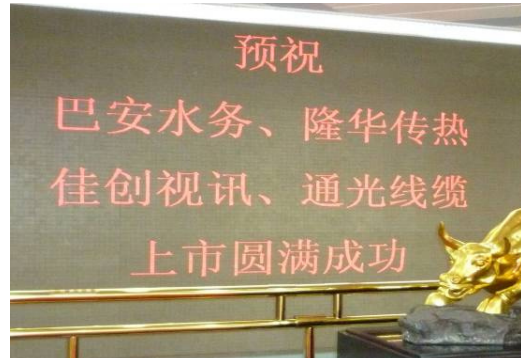 预祝
巴安水务、隆华传热
佳创视讯、通光线缆
上市圆满成功